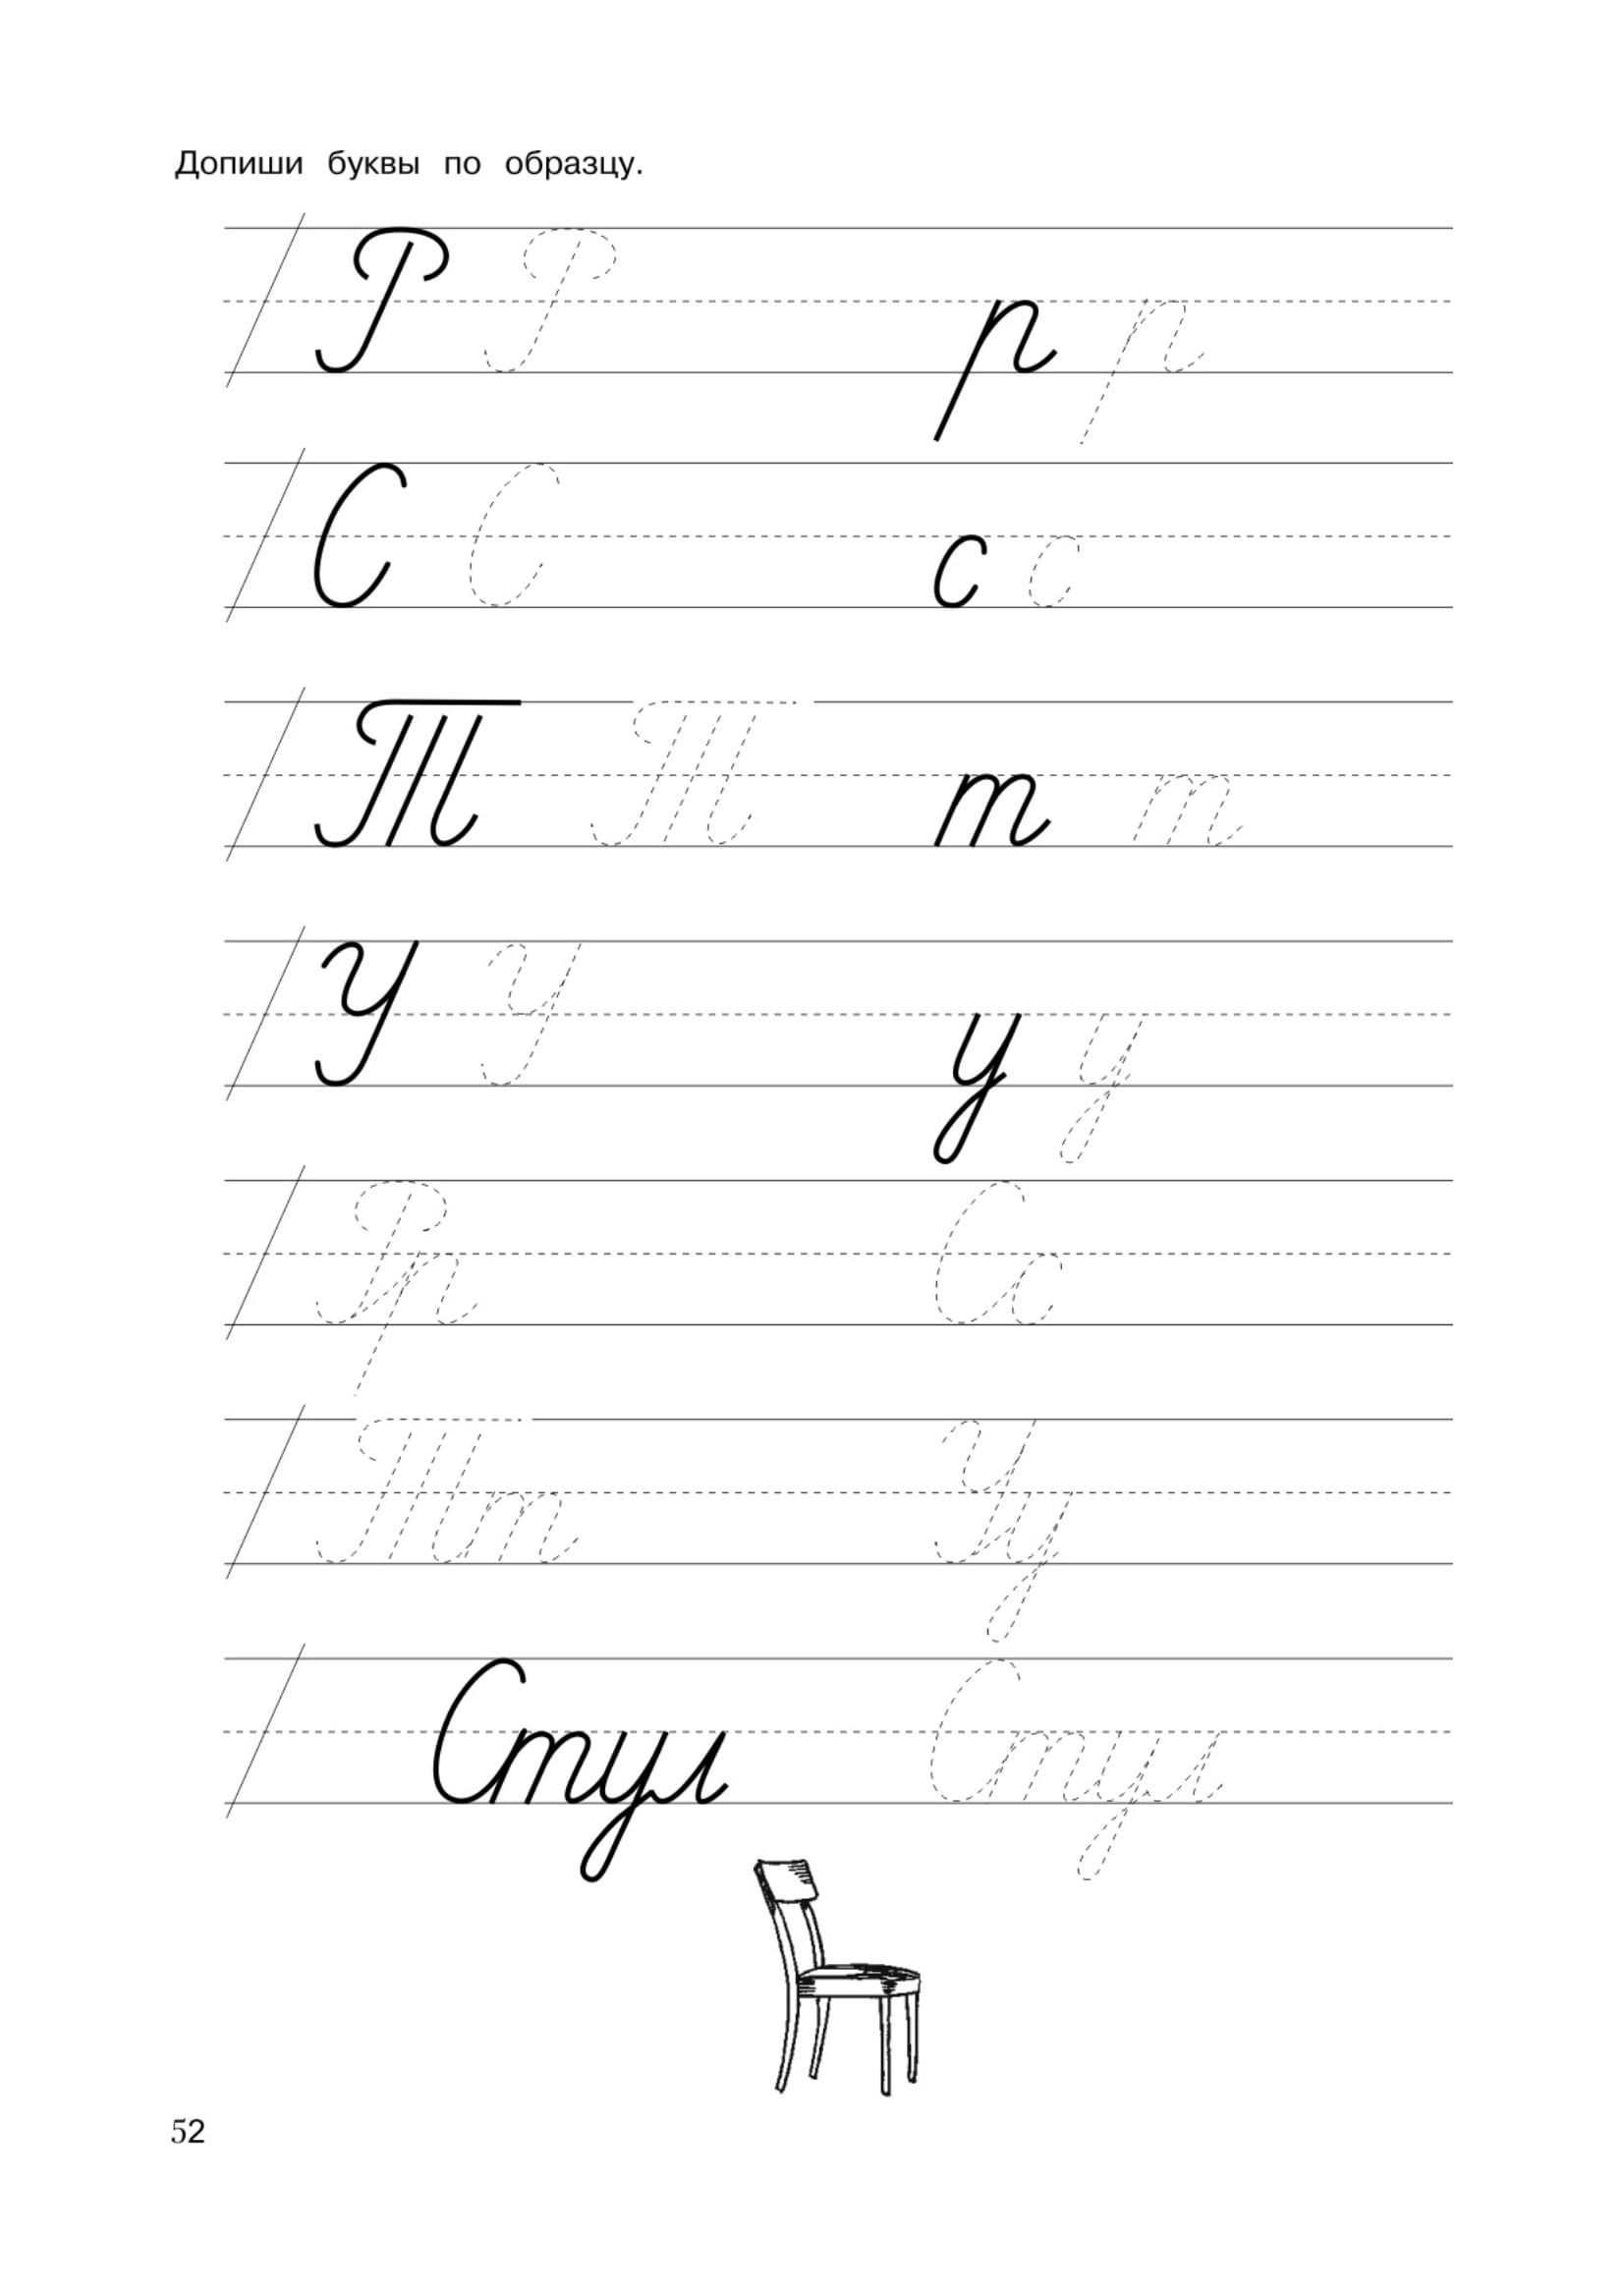 Допиши буквы по образцу.
Р Р р р
С С с с
Т Т т т
У У у у
Рр Сс
Тт Уу
Стул Стул
52